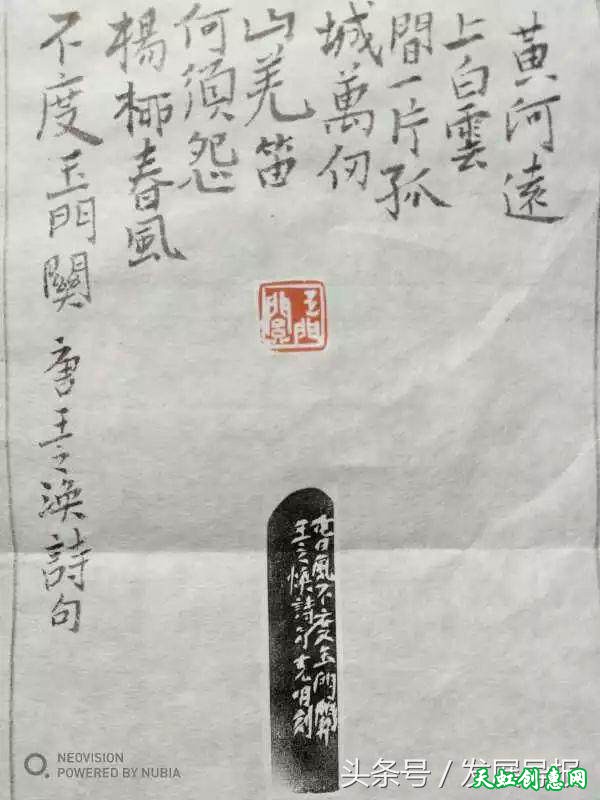 黃河遠
上白雲
間一片孤
城萬仞
山羌笛
何須怨
楊柳春風
不度玉門關 唐王之渙詩句
玉門關
春風不度玉門關
王之渙詩句
NEOVISION
POWERED BY NUBIA
头条号/发展导报
天虹创意网